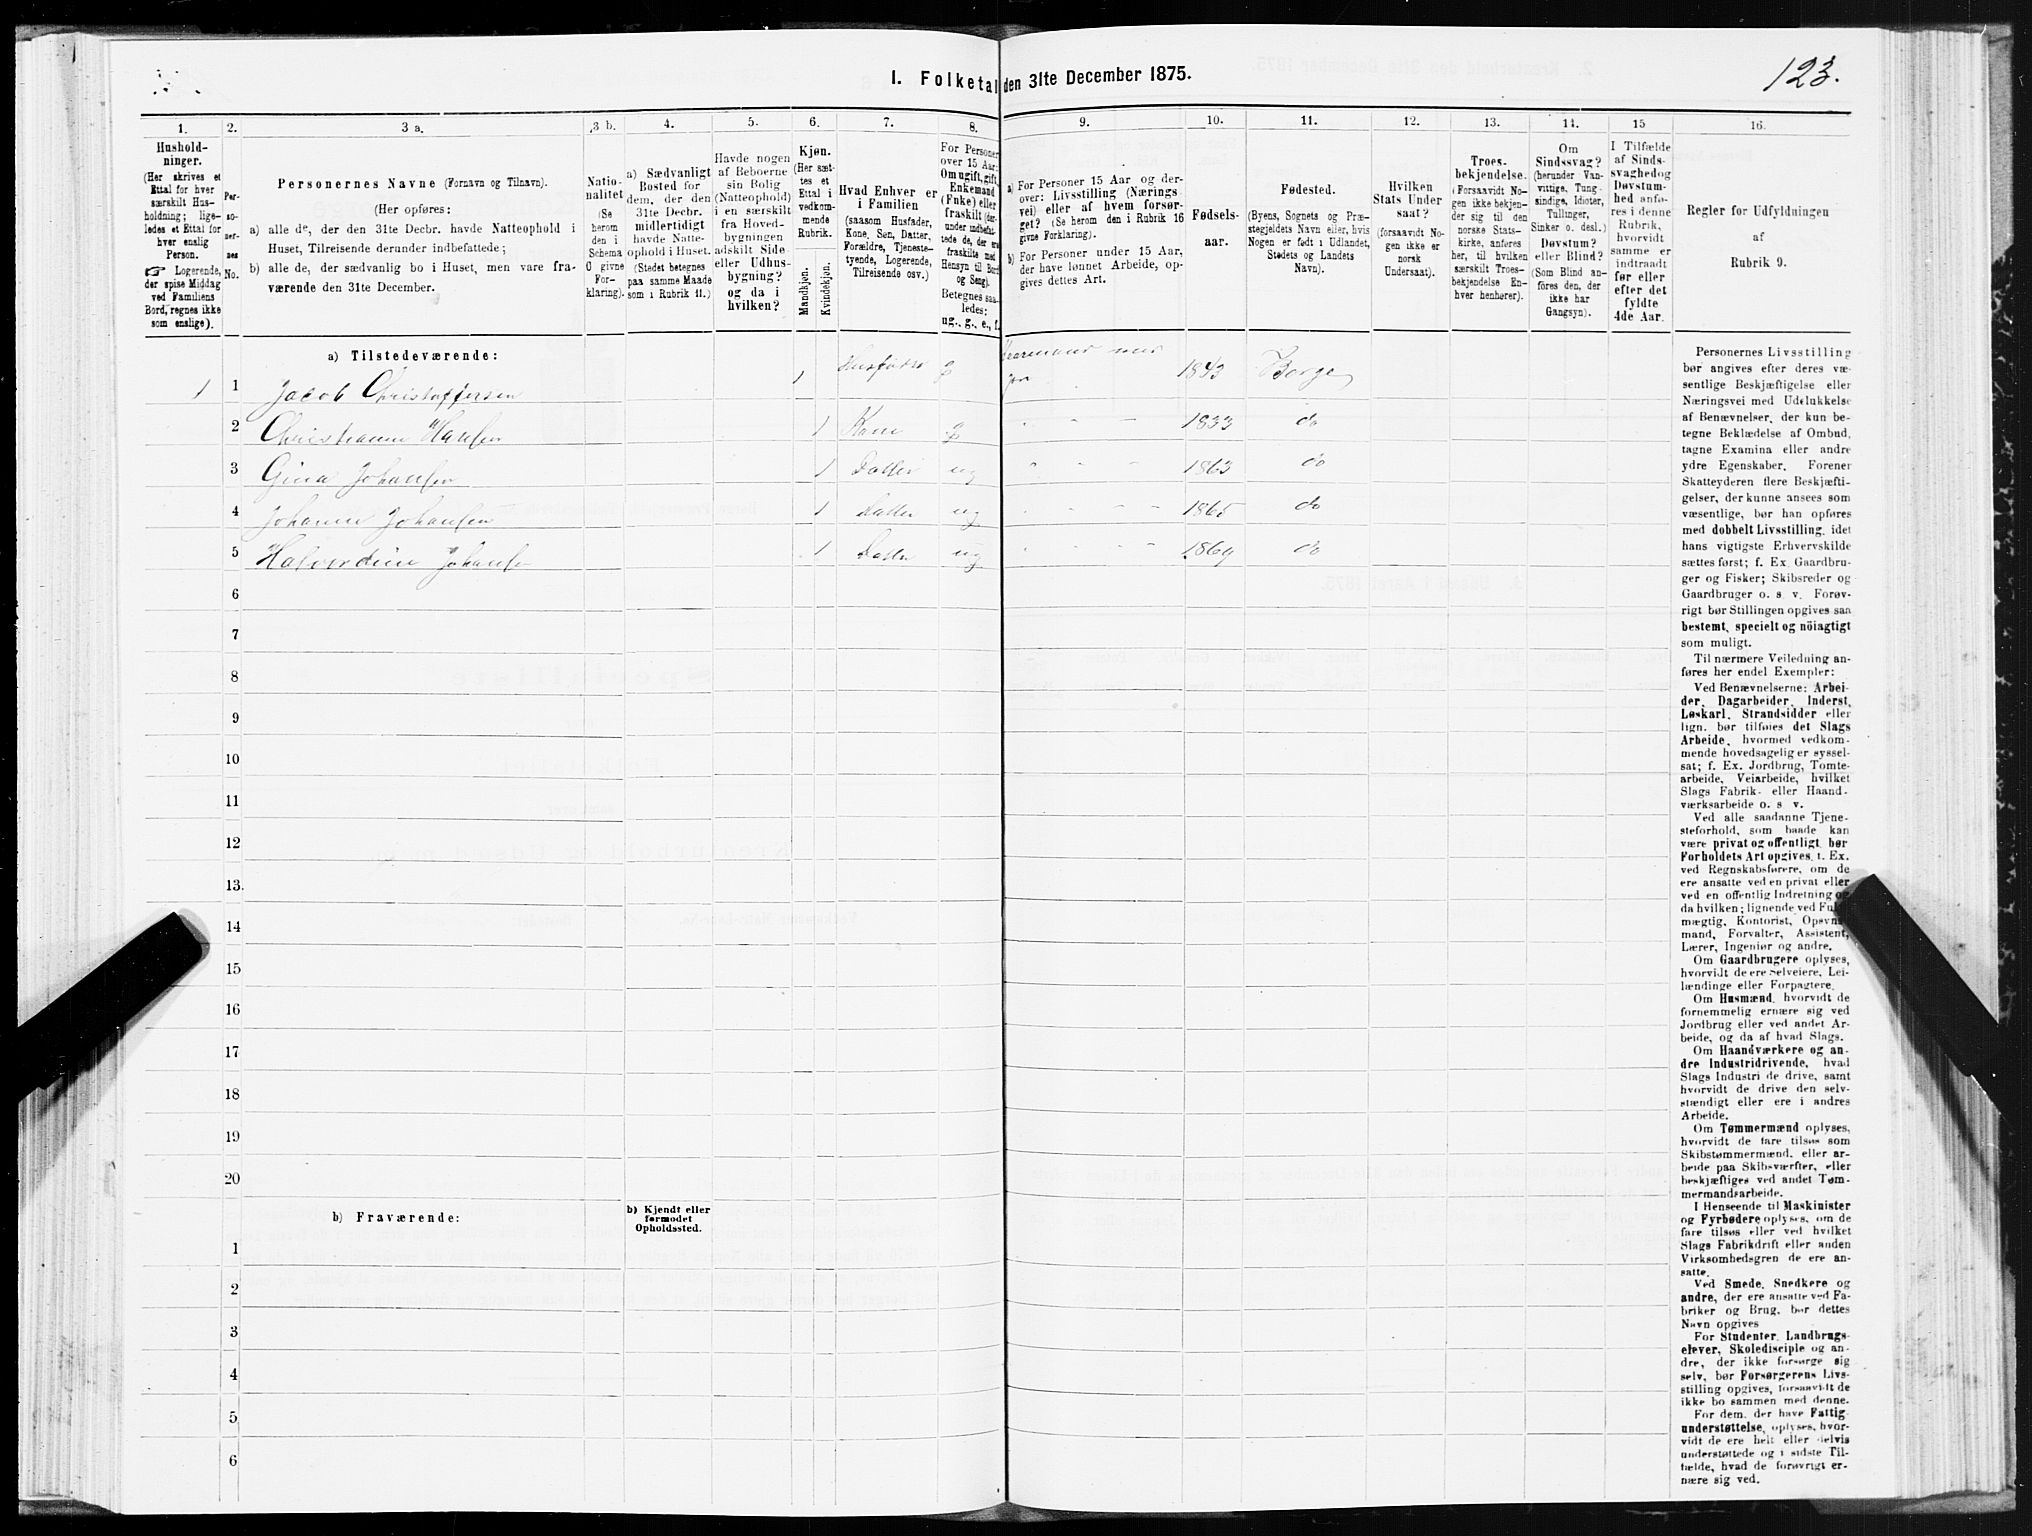 1. Folketal den 31te December 1875.
123.
1.
Hushold-
ninger.
(Her skrives et
Ettal for hver
særskilt Hus-
holdning; lige-
ledes et Ettal for
hver enslig
Person.
Logerende,
der spise Middag
ved Familiens
Bord, regnes ikke
som enslige).
2.
Per-
so-
ner-
nes
No.
3 a.
Personernes Navne (Fornavn og Tilnavn).
(Her opføres:
a) alle de, der den 31te Decbr. havde Natteophold i
Huset, Tilreisende derunder indbefattede;
b) alle de, der sædvanlig bo i Huset, men vare fra-
værende den 31te December.
3 b.
Natio-
nalitet
(Se
herom
den i
Schema
0 givne
For-
klaring).
4.
a) Sædvanligt
Bosted for
dem, der den
31te Decbr.
midlertidigt
havde Natte-
ophold i Huset.
(Stedet betegnes
paa samme Maade
som i Rubrik 11.)
5.
Havde nogen
af Beboerne
sin Bolig
(Natteophold)
i en særskilt
fra Hoved-
bygningen
adskilt Side-
eller Udhus-
bygning?
og da i
hvilken?
6.
Kjøn.
(Her sæt-
tes et
Ettal i
vedkom-
mende
Rubrik.
Mandkjøn.
Kvindekjøn.
7.
Hvad Enhver er
i Familien
(saasom Husfader,
Kone, Søn, Datter,
Forældre, Tjeneste-
tyende, Logerende,
Tilreisende osv.)
8.
For Personer
over 15 Aar:
Om ugift, gift,
Enkemand
(Enke) eller
fraskilt (der-
under indbefat-
tede de, der ere
fraskilte med
Hensyn til Bord
og Seng).
Betegnes saa-
ledes:
ug., g., e., f.
9.
a) For Personer 15 Aar og der-
over: Livsstilling (Nærings-
vei) eller af hvem forsør-
get? (Se herom den i Rubrik 16
givne Forklaring).
b) For Personer under 15 Aar,
der have lønnet Arbeide, op-
gives dettes Art.
10.
Fødsels-
aar.
11.
Fødested.
(Byens, Sognets og Præ-
stegjeldets Navn eller, hvis
Nogen er født i Udlandet,
Stedets og Landets
Navn).
12.
Hvilken
Stats Under
saat?
(forsaavidt No-
gen ikke er
norsk
Undersaat).
13.
Troes-
bekjendelse.
(Forsaavidt No-
gen ikke bekjen-
der sig til den
norske Stats-
kirke, anføres
her, til hvilken
særskilt Troes-
bekjendelse En-
hver henhører).
14.
Om
Sindssvag?
(herunder Van-
vittige, Tung-
sindige, Idioter,
Tullinger,
Sinker o. desl.)
Døvstum?
eller Blind?
(Som Blind an-
føres den, der
ikke har
Gangsyn).
15
I Tilfælde
af Sinds-
svaghed og
Døvstum-
hed anfø-
res i denne
Rubrik,
hvorvidt
samme er
indtraadt
før eller
efter det
fyldte
4de Aar.
16.
Regler for Udfyldningen
af
Rubrik 9.
a) Tilstedeværende:
1 1 Jacob Christoffersen 1 Husfader g 1843 Borge
2 Christianne Hansen 1 Kone g " - - 1833 do
3 Gina Johansen 1 Datter ug " " - 1863 do
4 Johanne Johansen 1 Datter ug " - - 1865 do
5 Johansen 1 Datter ug " - - - 1869 do
6
7
8
9
10
11
12
13.
14
15
16
17
18
19
20
b) Fraværende:
b) Kjendt eller
formodet
Opholdssted.
1
2
3
4
5
6
Personernes Livsstilling
bør angives efter deres væ-
sentlige Beskjæftigelse eller
Næringsvei med Udelukkelse
af Benævnelser, der kun be-
tegne Beklædelse af Ombud,
tagne Examina eller andre
ydre Egenskaber. Forener
Skatteyderen flere Beskjæfti-
gelser, der kunne ansees som
væsentlige, bør han opføres
med dobbelt Livsstilling, idet
hans vigtigste Erhvervskilde
sættes først; f. Ex. Gaardbru-
ger og Fisker; Skibsreder og
Gaardbruger o. s. v. Forøv-
rigt bør Stillingen opgives saa
bestemt, specielt og nöiagtigt
som muligt.
Til nærmere Veiledning an-
føres her endel Exempler:
Ved Benævnelserne: Arbei-
der, Dagarbeider, Inderst,
Løskarl, Strandsidder eller
lign. bør tilføies det Slags
Arbeide, hvormed vedkom-
mende hovedsagelig er syssel-
sat; f. Ex. Jordbrug, Tomte-
arbeide, Veiarbeide, hvilket
Slags Fabrik- eller Haand-
værksarbeide o. s. v.
Ved alle saadanne Tjene-
steforhold, som baade kan
være privat og offentligt, bør
Forholdets Art opgives, f. Ex.
ved Regnskabsførere, om de
ere ansatte ved en privat eller
ved en offentlig Indretning og
da hvilken; lignende ved Fuld-
mægtig, Kontorist, Opsyns-
mand, Forvalter, Assistent,
Lærer, Ingeniør og andre.
Om Gaardbrugere oplyses,
hvorvidt de ere Selveiere, Lei-
lændinge eller Forpagtere.
Om Husmænd, hvorvidt de
fornemmelig ernære sig ved
Jordbrug eller ved andet Ar-
beide, og da af hvad Slags.
Om Haandværkere og an-
dre Industridrivende, hvad
Slags Industri de drive, samt
hvorvidt de drive den selv-
stændigt eller ere i andres
Arbeide.
Om Tømmermænd oplyses,
hvorvidt de fare tilsøs som
Skibstømmermænd, eller ar-
beide paa Skibsværfter, eller
beskjæftiges ved andet Tøm-
mermandsarbeide.
I Henseende til Maskinister
og Fyrbødere oplyses, om de
fare tilsøs eller ved hvilket
Slags Fabrikdrift eller anden
Virksomhedsgren de ere an-
satte.
Ved Smede, Snedkere og
andre, der ere ansatte ved Fa-
briker og Brug, bør dettes
Navn opgives
For Studenter, Landbrugs-
elever, Skoledisciple og an-
dre, der ikke forsørge sig
selv, bør Forsørgerens Livs-
stilling opgives, forsaavidt de
ikke bo sammen med denne.
For dem, der have Fattig-
understøttelse, oplyses, hvor-
vidt de ere helt eller delvis
understøttede og i sidste Til-
fælde, hvad de forøvrigt er-
nære sig ved.